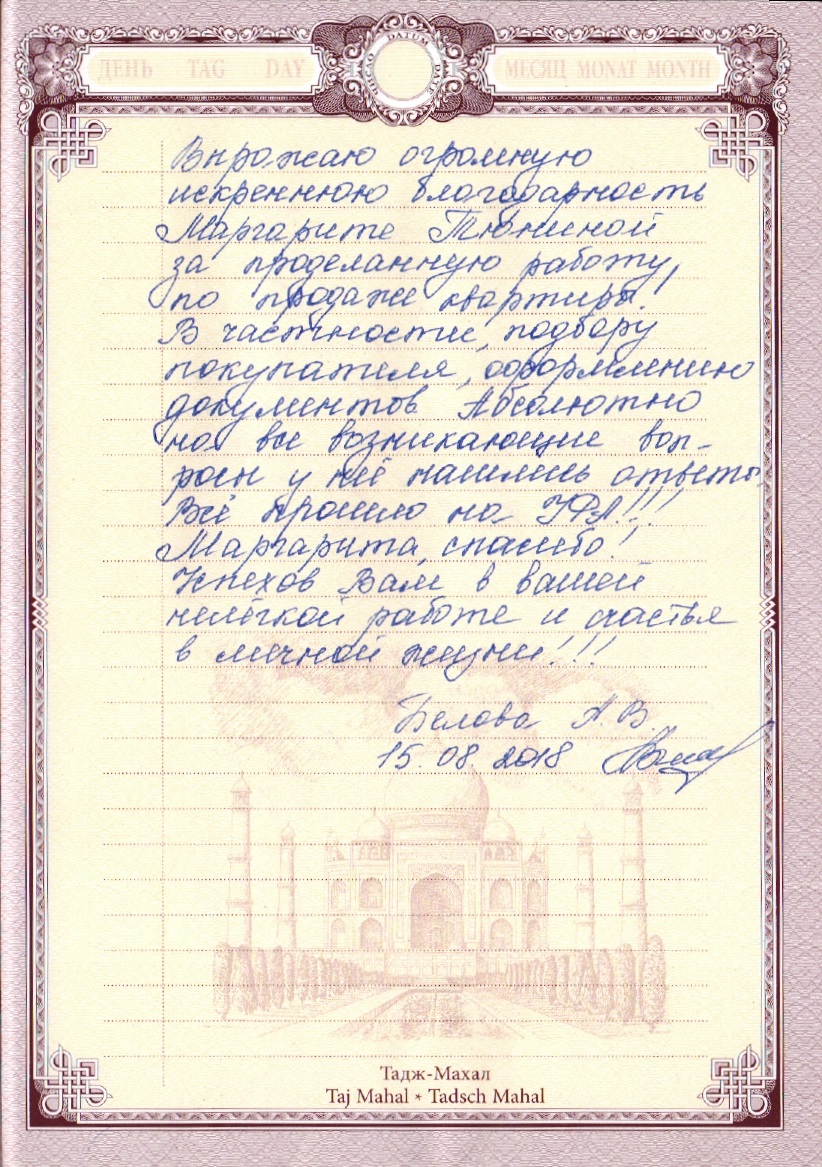 ДЕНЬ TAG DAY
DATUM
МЕСЯЦ MONAT MONTH
Выражаю огромную
искреннюю благодарность
Маргарите Тюниной
за проделанную работу
по продаже квартиры!
В частности, подбору
покупателя, оформлению
документов Абсолютно
на все возникающие воп-
росы у неё нашлись ответы.
Всё прошло на УРА!!!
Маргарита, спасибо!
Успехов Вам в вашей
нелёгкой работе и счастья
в личной жизни!!!
Белова А.В.
15.08.2018
Тадж-Махал
Taj Mahal * Tadsch Mahal